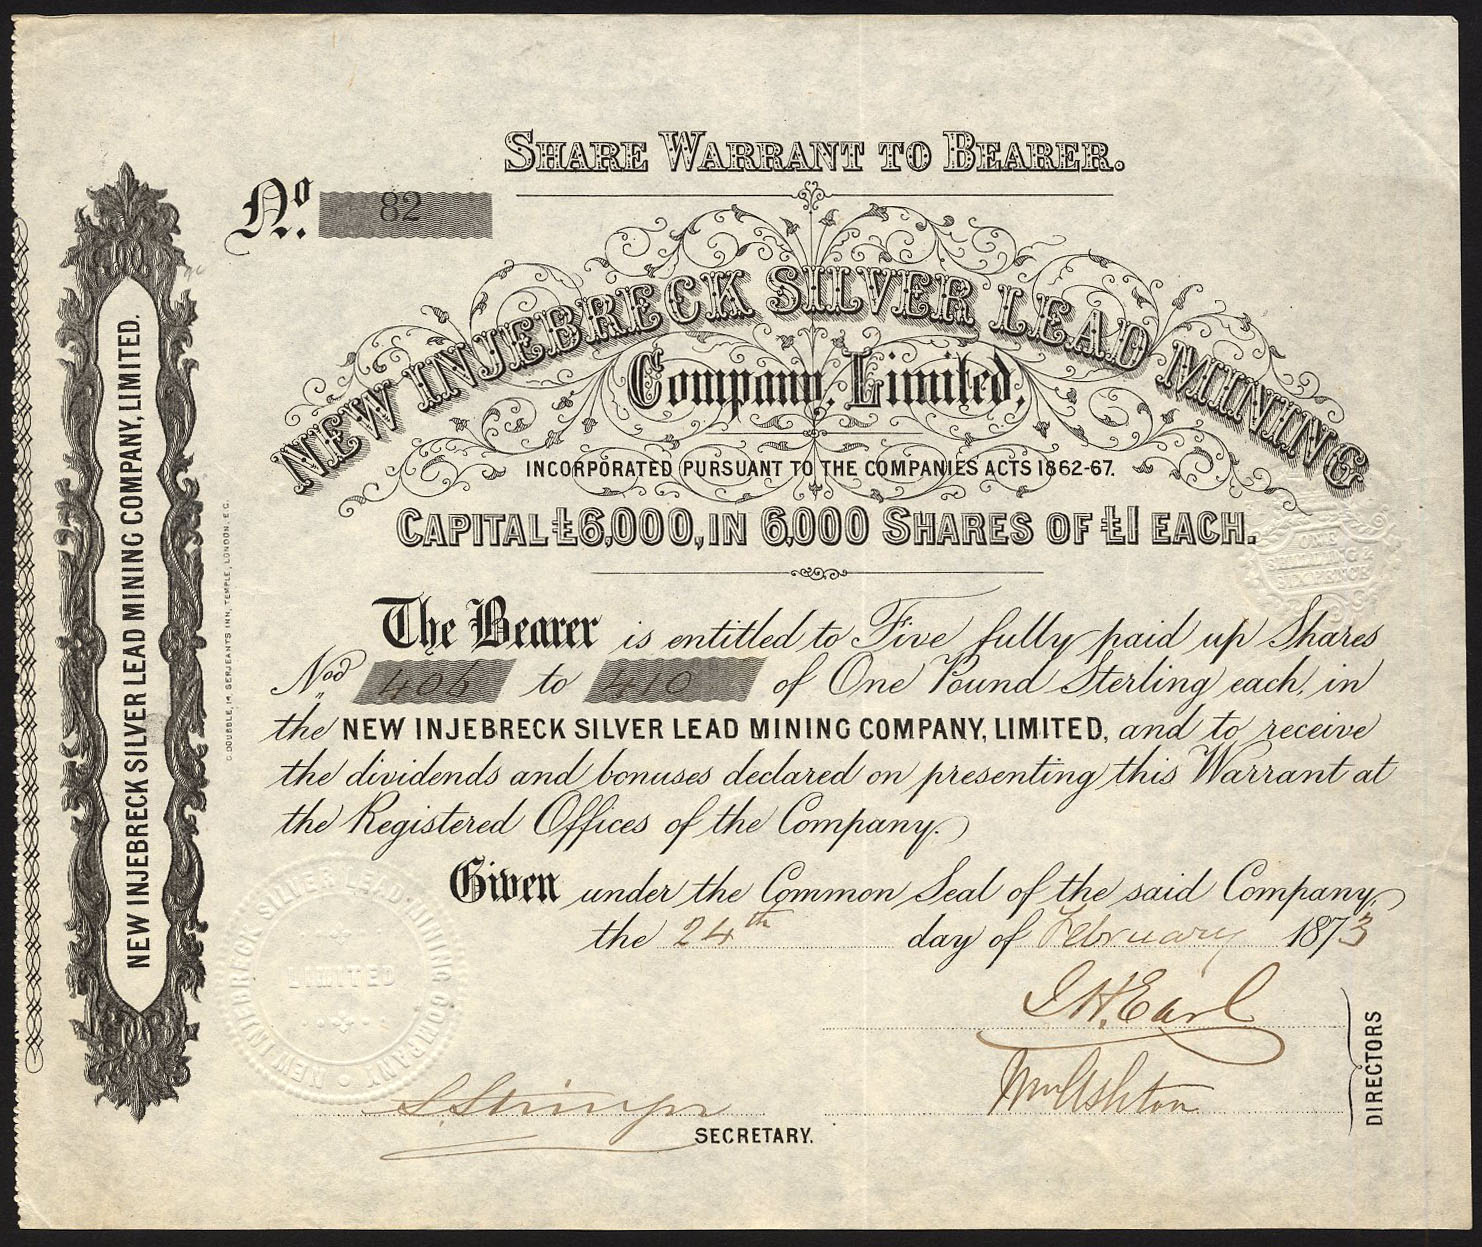 SHARE WARRANT TO BEARER.
No. 82
NEW INJEBRECK SILVER LEAD MINING
Company, Limited,
INCORPORATED PURSUANT TO THE COMPANIES ACTS 1862-67.
CAPITAL £6,000, IN 6,000 SHARES OF £1 EACH.
ONE
SHILLING &
SIX PENCE
The Bearer is entitled to Five fully paid up Shares
Nos 406 to 410 of One Pound Sterling each, in
the NEW INJEBRECK SILVER LEAD MINING COMPANY, LIMITED, and to receive
the dividends and bonuses declared on presenting this Warrant at
the Registered Offices of the Company.
Given under the Common Seal of the said Company,
the 24th day of February 1873
J. H. Earl
Wm Ashton
DIRECTORS
S. Stringer
SECRETARY.
NEW INJEBRECK SILVER LEAD MINING COMPANY
LIMITED
NEW INJEBRECK SILVER LEAD MINING COMPANY, LIMITED.
C. DOUBBLE, 14, SERJEANTS INN, TEMPLE, LONDON, E.C.